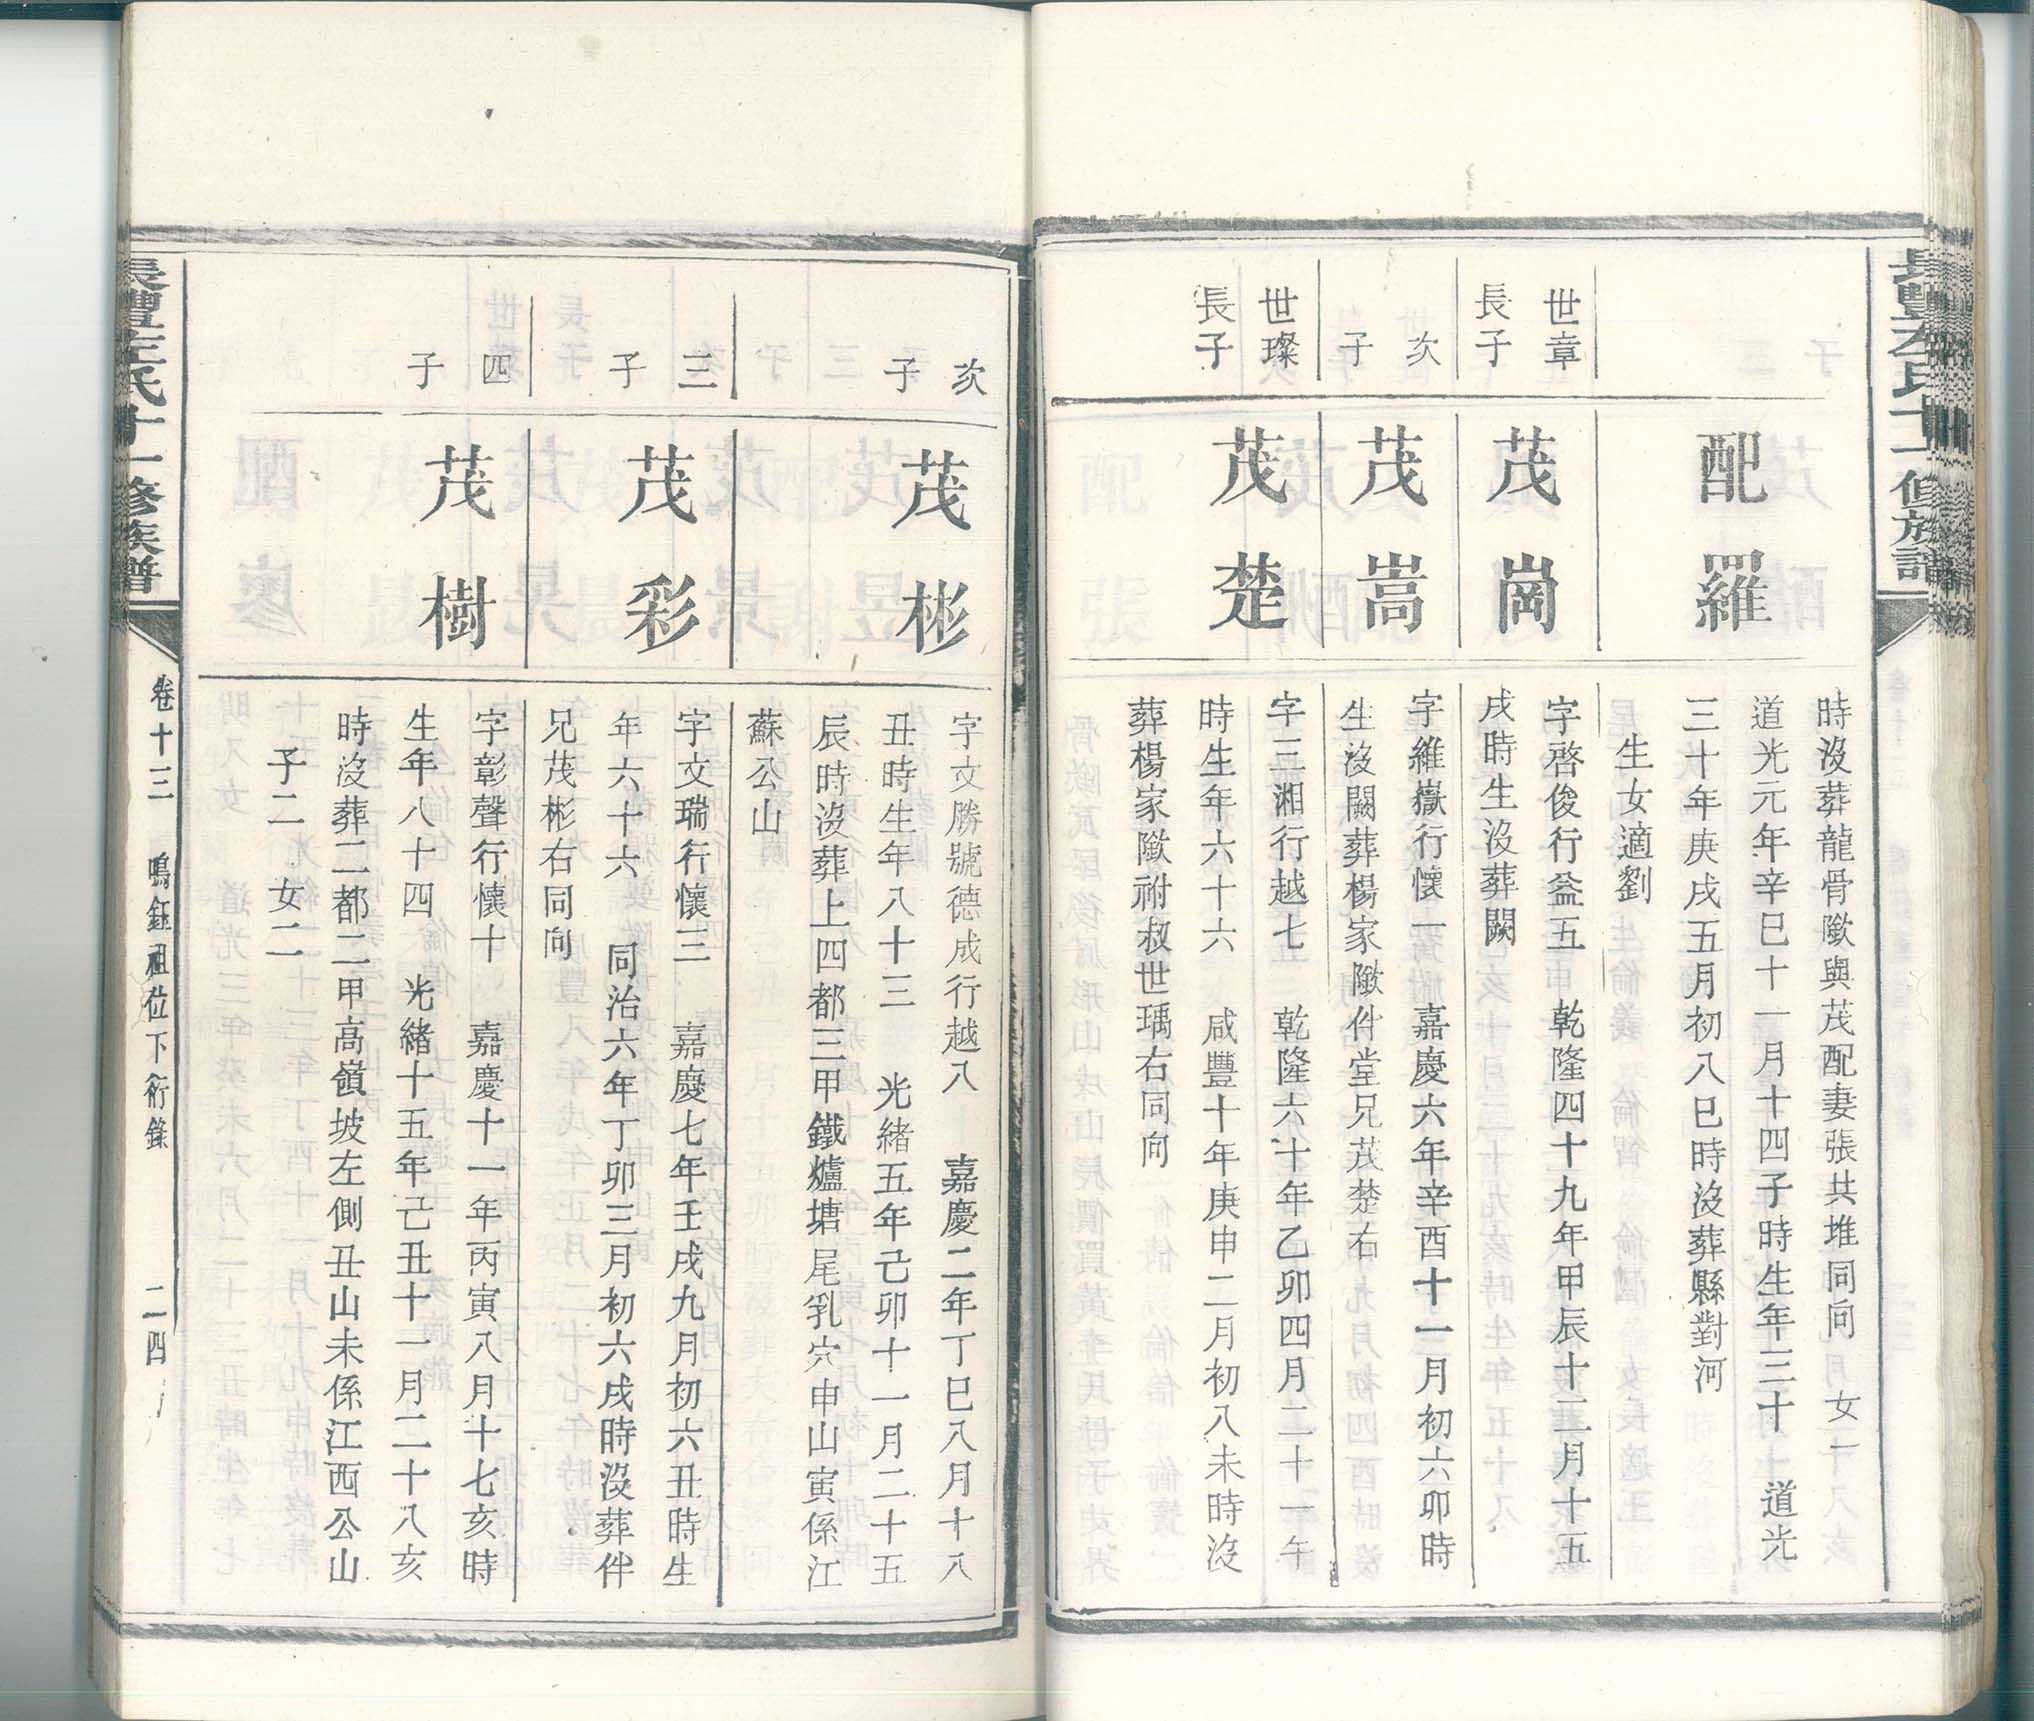 長豐左氏十一修族譜
時沒葬龍骨隞與茂配妻張共堆同向 女一
配羅
道光元年辛巳十一月十四子時生年三十 道光
三十年庚戌五月初八巳時沒葬縣對河
生女適劉
世章
長子
茂崗
字啓俊行益五 乾隆四十九年甲辰十二月十五
戌時生沒葬闕
次
子
茂嵩
字維嶽行懷一 嘉慶六年辛酉十一月初六卯時
生沒闕葬楊家隞伴堂兄茂楚右
世璨
長子
茂楚
字三湘行越七 乾隆六十年乙卯四月二十一午
時生年六十六 咸豐十年庚申二月初八未時沒
葬楊家隞祔叔世瑀右同向
次
子
茂彬
字文勝號德成行越八 嘉慶二年丁巳八月十八
丑時生年八十三 光緒五年己卯十一月二十五
辰時沒葬上四都三甲鐵爐塘尾乳穴申山寅係江
蘇公山
三
子
茂彩
字文瑞行懷三 嘉慶七年壬戌九月初六丑時生
年六十六 同治六年丁卯三月初六戌時沒葬伴
兄茂彬右同向
四
子
茂樹
字彰聲行懷十 嘉慶十一年丙寅八月十七亥時
生年八十四 光緒十五年己丑十一月二十八亥
時沒葬二都二甲高嶺坡左側丑山未係江西公山
子二 女二
長豐左氏十一修族譜
卷十三 鳴鈺祖位下衍錄 二四